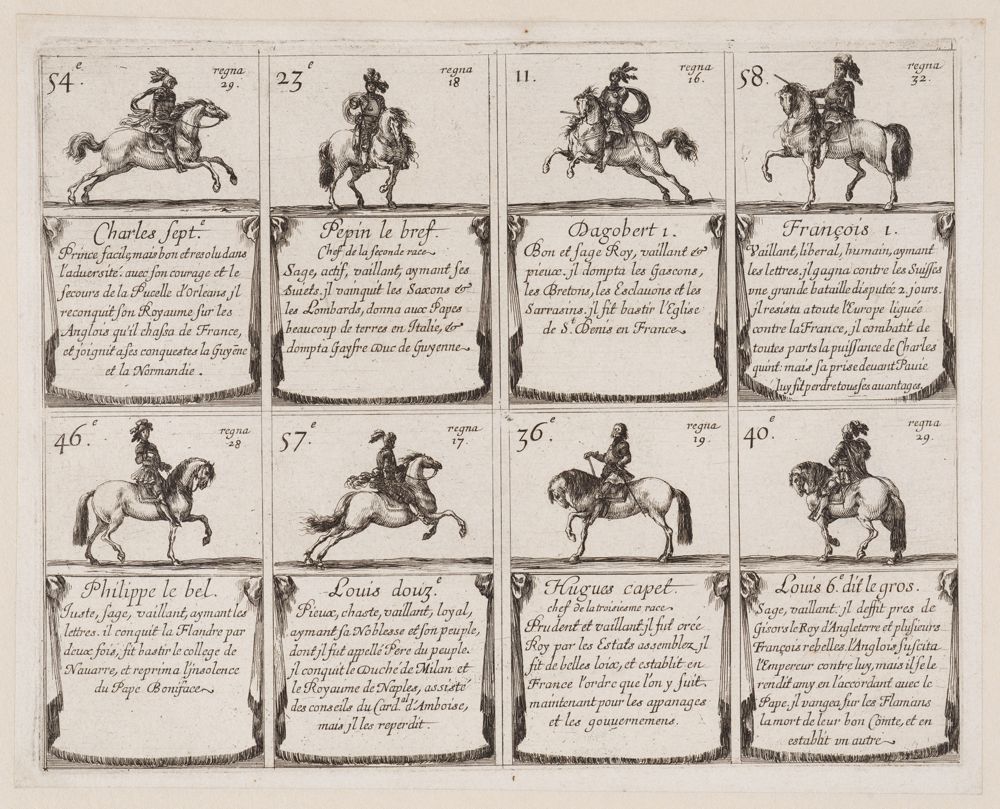 54.e
regna
29.
Charles sept.e
Prince facile, mais bon et resolu dans
l'aduersité. auec son courage et le
secours de la Pucelle d'Orleans, jl
reconquit son Royaume sur les
Anglois qu'il chassa de France,
et joignit a ses conquestes la Guyēne
et la Normandie.
23.e
regna
18
Pepin le bref.
Chef de la seconde race
Sage, actif, vaillant, aymant ses
suiets. jl vainquit les Saxons &
les Lombards, donna aux Papes
beaucoup de terres en Italie, &
dompta Gayfre Duc de Guyenne
11.
regna
16.
Dagobert 1.
Bon et sage Roy, vaillant &
pieux. jl dompta les Gascons,
les Bretons, les Esclauons et les
Sarrasins. jl fit bastir l'Eglise
de St. Denis en France
58.
regna
32.
François 1.
Vaillant, liberal, humain, aymant
les lettres. jl gagna contre les Suisses
vne grande bataille disputée 2. jours.
jl resista a toute l'Europe liguée
contre la France, jl combatit de
toutes parts la puissance de Charles
quint: mais sa prise deuant Pauie
luy fit perdre tous ses auantages.
46.e
regna
28
Philippe le bel.
Iuste, sage, vaillant, aymant les
lettres. il conquit la Flandre par
deux fois, fit bastir le college de
Nauarre, et reprima l'jnsolence
du Pape Boniface
57.e
regna
17.
Louis douz.e
Pieux, chaste, vaillant, loyal,
aymant sa Noblesse et son peuple,
dont jl fut appellé Pere du peuple.
jl conquit le Duché de Milan et
le Royaume de Naples, assisté
des conseils du Card.al d'Amboise,
mais jl les reperdit.
36.e
regna
19.
Hugues capet.
chef de la troisiesme race
Prudent et vaillant. jl fut creé
Roy par les Estats assemblez, jl
fit de belles loix, et establit en
France l'ordre que l'on y suit
maintenant pour les appanages
et les gouuernemens.
40.e
regna
29.
Louis 6.e dit le gros.
Sage, vaillant. jl deffit pres de
Gisors le Roy d'Angleterre et plusieurs
François rebelles. l'Anglois suscita
l'Empereur contre luy, mais il se le
rendit amy en l'accordant auec le
Pape. jl vangea sur les Flamans
la mort de leur bon Comte, et en
establit vn autre